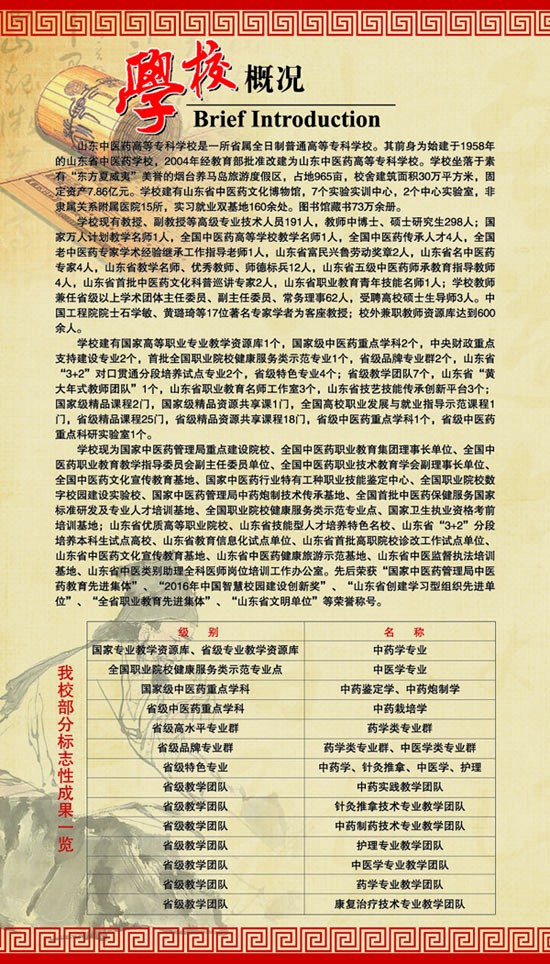 學校概况
Brief Introduction
山东中医药高等专科学校是一所省属全日制普通高等专科学校。其前身为始建于1958年
的山东省中医药学校，2004年经教育部批准改建为山东中医药高等专科学校。学校坐落于素
有“东方夏威夷”美誉的烟台养马岛旅游度假区，占地965亩，校舍建筑面积30万平方米，固
定资产7.86亿元。学校建有山东省中医药文化博物馆，7个实验实训中心，2个中心实验室，非
隶属关系附属医院15所，实习就业双基地160余处。图书馆藏书73万余册。
学校现有教授、副教授等高级专业技术人员191人，教师中博士、硕士研究生298人；国
家万人计划教学名师1人，全国中医药高等学校教学名师1人，全国中医药传承人才4人，全国
老中医药专家学术经验继承工作指导老师1人，山东省富民兴鲁劳动奖章2人，山东省名中医药
专家4人，山东省教学名师、优秀教师、师德标兵12人，山东省五级中医药师承教育指导教师
4人，山东省首批中医药文化科普巡讲专家2人，山东省职业教育青年技能名师1人；学校教师
兼任省级以上学术团体主任委员、副主任委员、常务理事62人，受聘高校硕士生导师3人。中
国工程院院士石学敏、黄璐琦等17位著名专家学者为客座教授；校外兼职教师资源库达到600
余人。
学校建有国家高等职业专业教学资源库1个，国家级中医药重点学科2个，中央财政重点
支持建设专业2个，首批全国职业院校健康服务类示范专业1个，省级品牌专业群2个，山东省
“3+2”对口贯通分段培养试点专业2个，省级特色专业4个；省级教学团队7个，山东省“黄
大年式教师团队”1个，山东省职业教育名师工作室3个，山东省技艺技能传承创新平台3个；
国家级精品课程2门，国家级精品资源共享课1门，全国高校职业发展与就业指导示范课程1
门，省级精品课程25门，省级精品资源共享课程18门，省级中医药重点学科1个，省级中医药
重点科研实验室1个。
学校现为国家中医药管理局重点建设院校、全国中医药职业教育集团理事长单位、全国中
医药职业教育教学指导委员会副主任委员单位、全国中医药职业技术教育学会副理事长单位、
全国中医药文化宣传教育基地、国家中医药行业特有工种职业技能鉴定中心、全国职业院校数
字校园建设实验校、国家中医药管理局中药炮制技术传承基地、全国首批中医药保健服务国家
标准研发及专业人才培训基地、全国职业院校健康服务类示范专业点、国家卫生执业资格考前
培训基地；山东省优质高等职业院校、山东省技能型人才培养特色名校、山东省“3+2”分段
培养本科生试点高校、山东省教育信息化试点单位、山东省首批高职院校诊改工作试点单位、
山东省中医药文化宣传教育基地、山东省中医药健康旅游示范基地、山东省中医监督执法培训
基地、山东省中医类别助理全科医师岗位培训工作办公室。先后荣获“国家中医药管理局中医
药教育先进集体”、“2016年中国智慧校园建设创新奖”、“山东省创建学习型组织先进单
位”、“全省职业教育先进集体”、“山东省文明单位”等荣誉称号。
我校部分标志性成果一览
级 别 名 称
国家专业教学资源库、省级专业教学资源库 中药学专业
全国职业院校健康服务类示范专业点 中医学专业
国家级中医药重点学科 中药鉴定学、中药炮制学
省级中医药重点学科 中药栽培学
省级高水平专业群 药学类专业群
省级品牌专业群 药学类专业群、中医学类专业群
省级特色专业 中药学、针灸推拿、中医学、护理
省级教学团队 中药实践教学团队
省级教学团队 针灸推拿技术专业教学团队
省级教学团队 中药制药技术专业教学团队
省级教学团队 护理专业教学团队
省级教学团队 中医学专业教学团队
省级教学团队 药学专业教学团队
省级教学团队 康复治疗技术专业教学团队